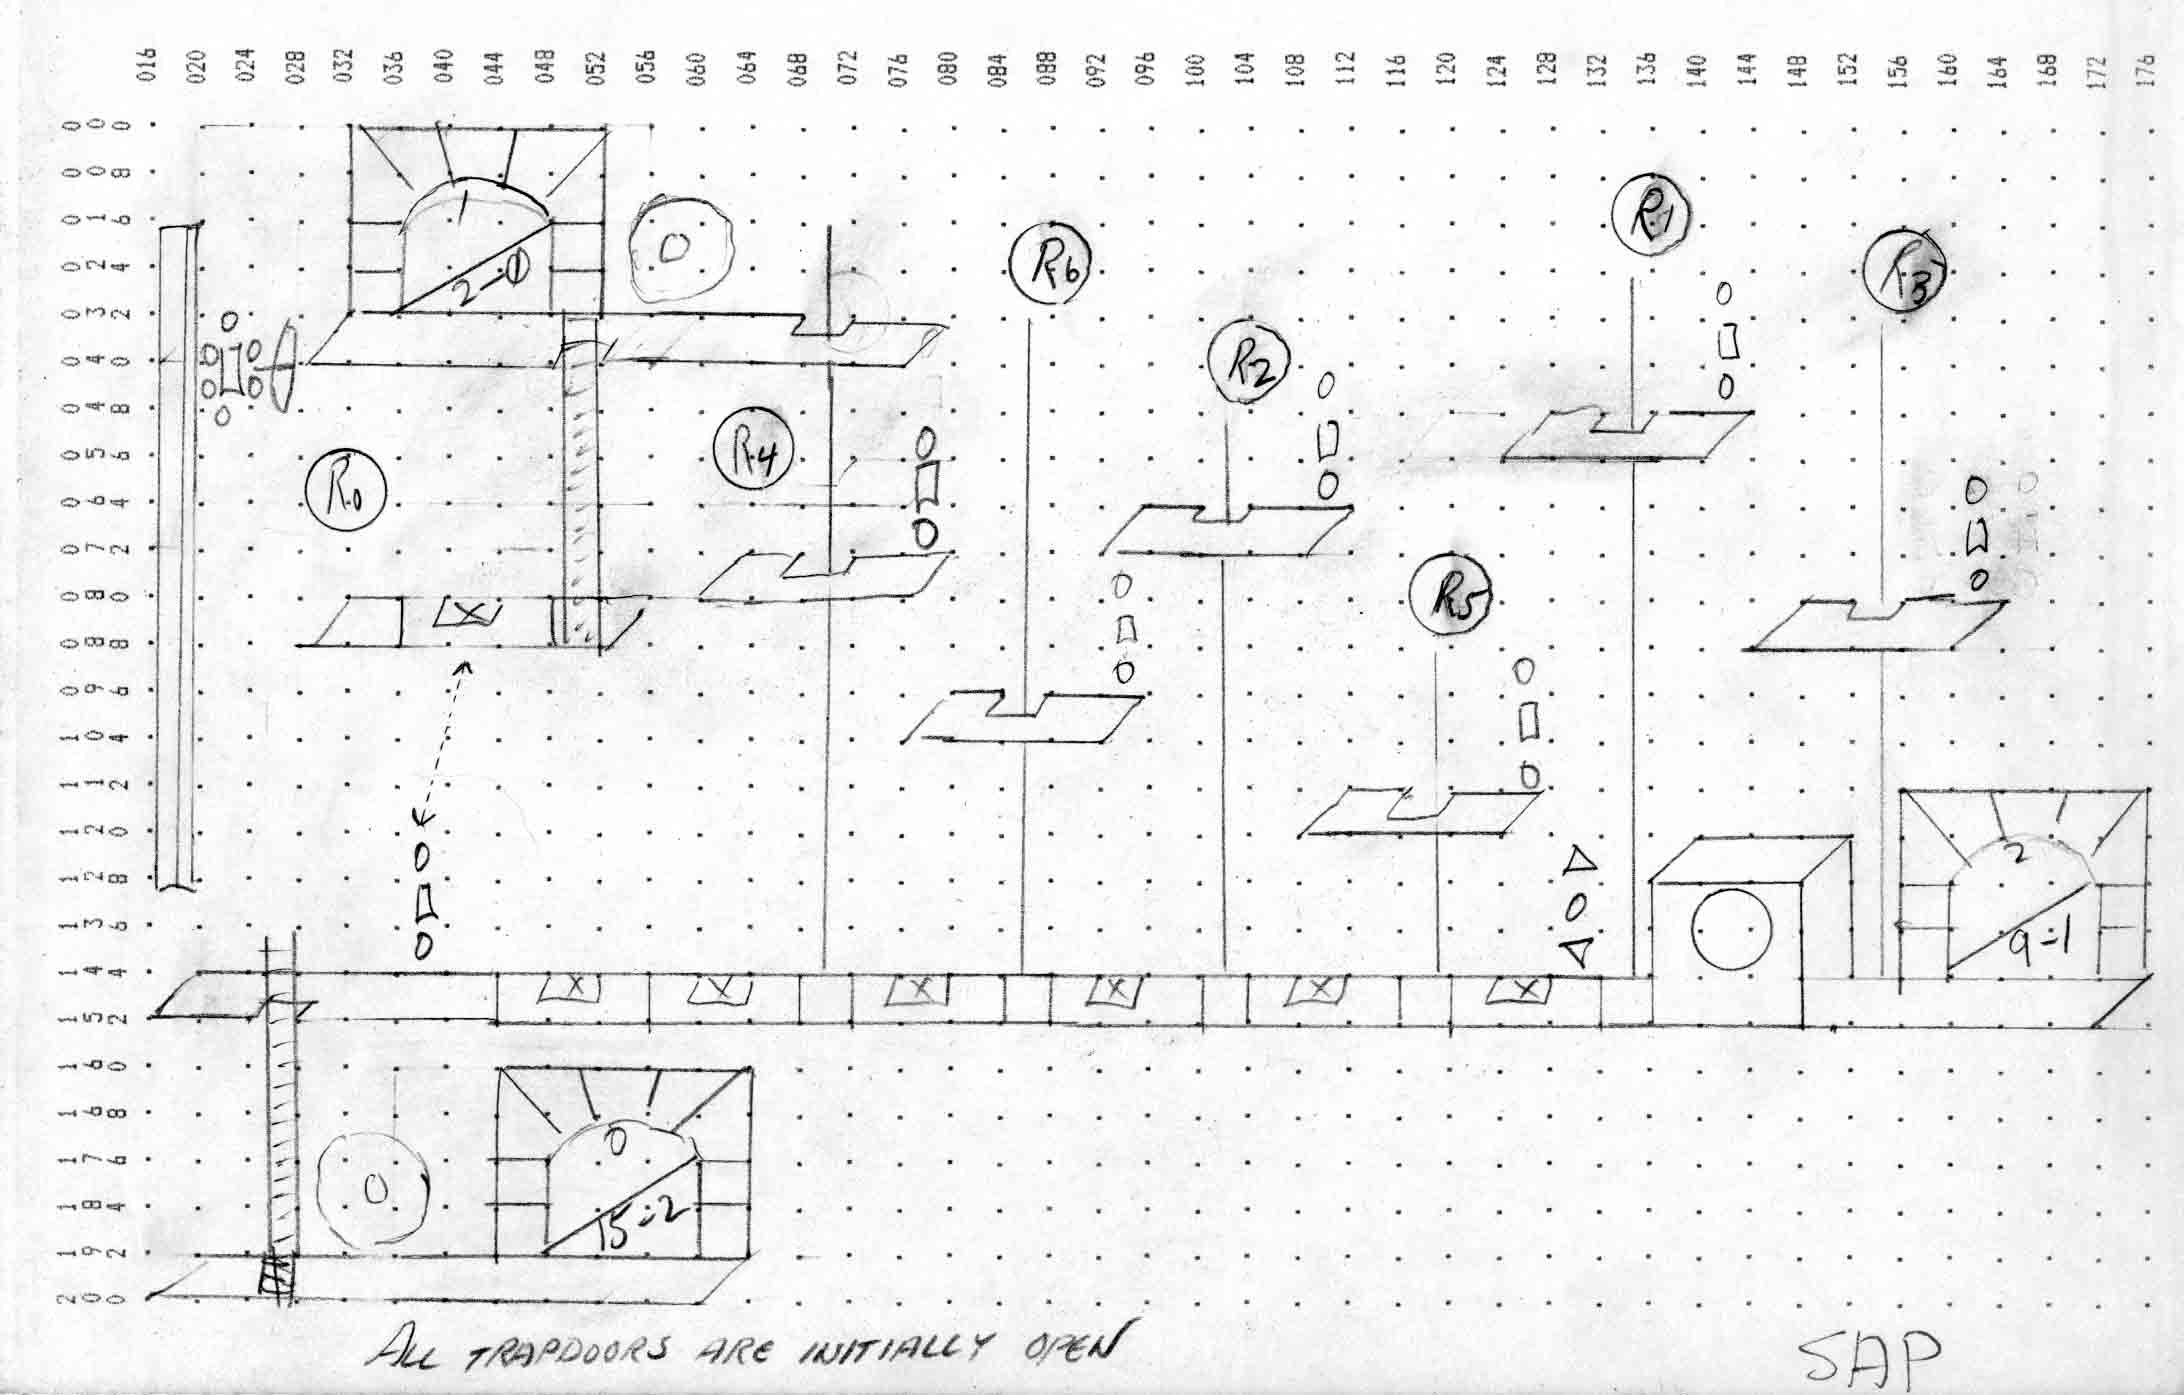 016 020 024 028 032 036 040 044 048 052 056 060 064 068 072 076 080 084 088 092 096 100 104 108 112 116 120 124 128 132 136 140 144 148 152 156 160 164 168 172 176
000
008
016
024
032
040
048
056
064
072
080
088
096
104
112
120
128
136
144
152
160
168
176
184
192
200
1
2-1
0
R6
R1
R3
R2
R4
R0
R5
X
X X X X X X
2
9-1
0
0
15-2
ALL TRAPDOORS ARE INITIALLY OPEN
SAP